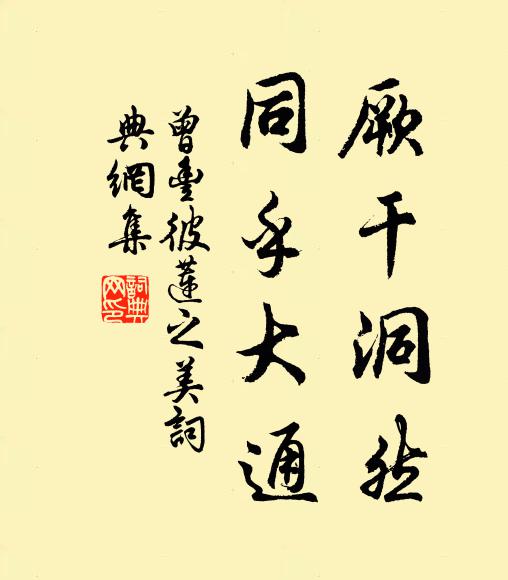 厥干洞然
同乎大通
曾丰彼莲之美詞
典網集
詞典
网印